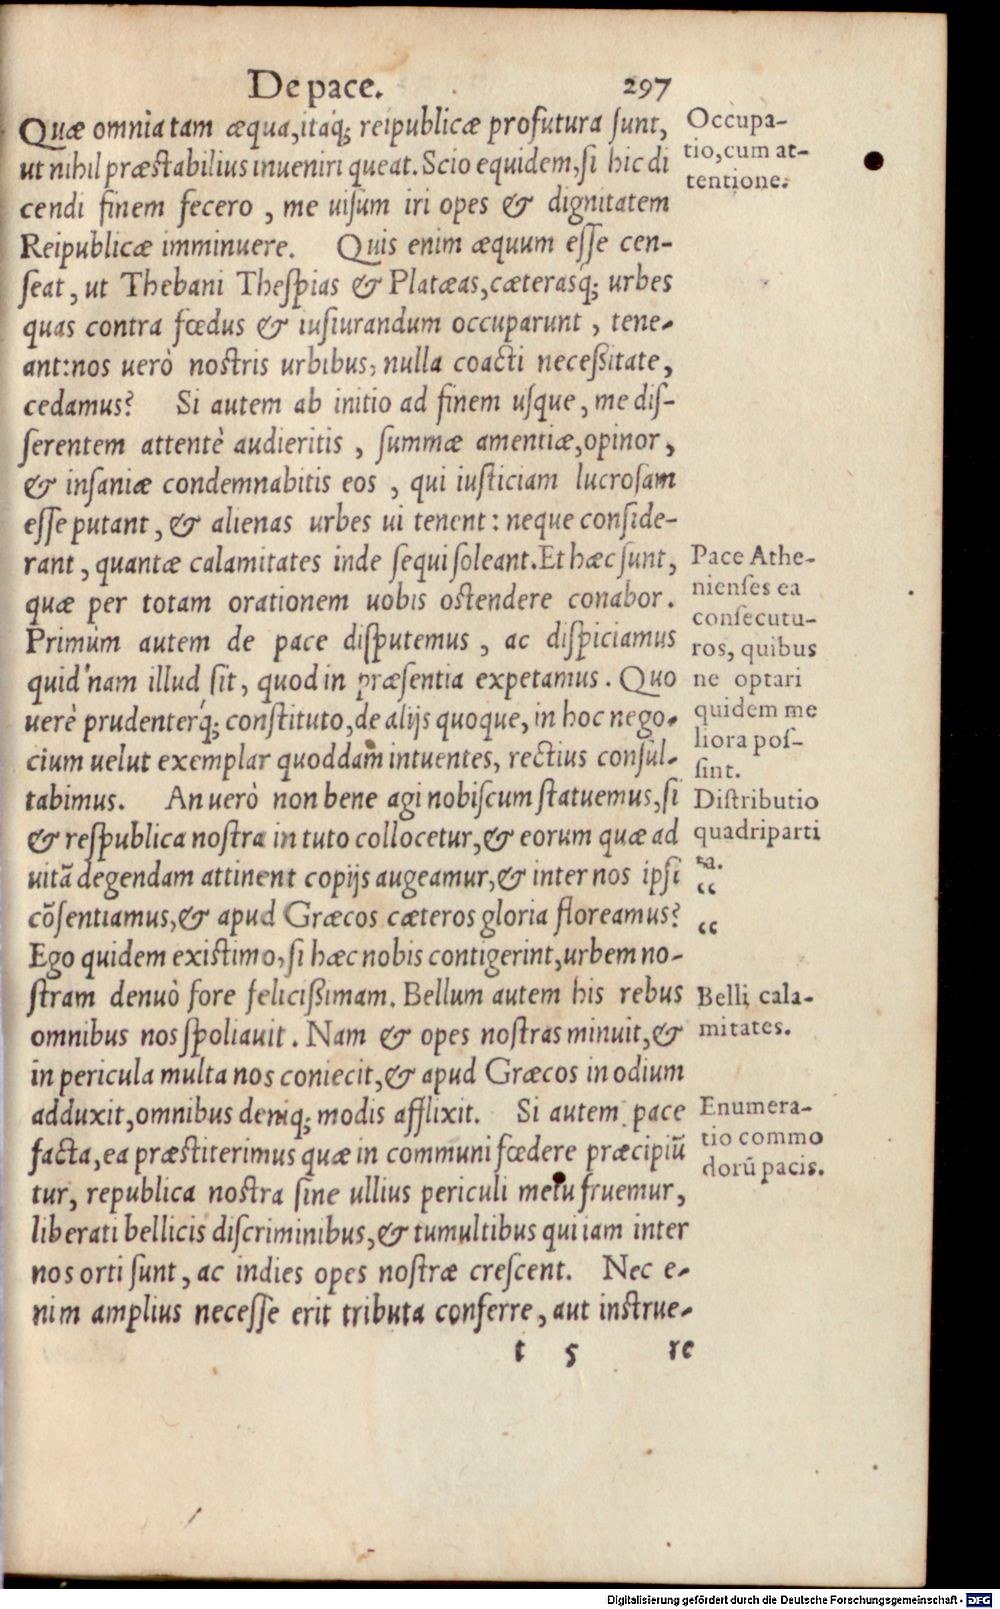 De pace. 297
Quæ omnia tam æqua, itaq; reipublicæ profutura ſunt,
ut nihil præſtabilius inueniri queat. Scio equidem, ſi hic di
cendi finem fecero, me uiſum iri opes & dignitatem
Reipublicæ imminuere. Quis enim æquum eſſe cen-
ſeat, ut Thebani Theſpias & Platæas, cæterasq́; urbes
quas contra fœdus & iuſiurandum occuparunt, tene-
ant: nos uerò noſtris urbibus, nulla coacti neceßitate,
cedamus? Si autem ab initio ad finem uſque, me diſ-
ſerentem attentè audieritis, ſummæ amentiæ, opinor,
& inſaniæ condemnabitis eos, qui iuſticiam lucroſam
eſſe putant, & alienas urbes ui tenent: neque conſide-
rant, quantæ calamitates inde ſequi ſoleant. Et hæc ſunt,
quæ per totam orationem uobis oſtendere conabor.
Primùm autem de pace diſputemus, ac diſpiciamus
quid'nam illud ſit, quod in præſentia expetamus. Quo
uerè prudenterq́; conſtituto, de alijs quoque, in hoc nego-
cium uelut exemplar quoddam intuentes, rectius conſul-
tabimus. An uerò non bene agi nobiſcum ſtatuemus, ſi
& reſpublica noſtra in tuto collocetur, & eorum quæ ad
uitā degendam attinent copijs augeamur, & inter nos ipſi
cōſentiamus, & apud Græcos cæteros gloria floreamus?
Ego quidem exiſtimo, ſi hæc nobis contigerint, urbem no-
ſtram denuò fore feliciſſimam. Bellum autem his rebus
omnibus nos ſpoliauit. Nam & opes noſtras minuit, &
in pericula multa nos coniecit, & apud Græcos in odium
adduxit, omnibus deniq; modis afflixit. Si autem pace
facta, ea præſtiterimus quæ in communi fœdere præcipiū
tur, republica noſtra ſine ullius periculi metu fruemur,
liberati bellicis diſcriminibus, & tumultibus qui iam inter
nos orti ſunt, ac indies opes noſtræ creſcent. Nec e-
nim amplius neceſſe erit tributa conferre, aut inſtrue-
t 5 re
Occupa-
tio, cum at-
tentione.
Pace Athe-
nienſes ea
conſecutu-
ros, quibus
ne optari
quidem me
liora poſ-
ſint.
Diſtributio
quadriparti
ta.
“
“
Belli cala-
mitates.
Enumera-
tio commo
dorū pacis.
Digitalisierung gefördert durch die Deutsche Forschungsgemeinschaft - DFG